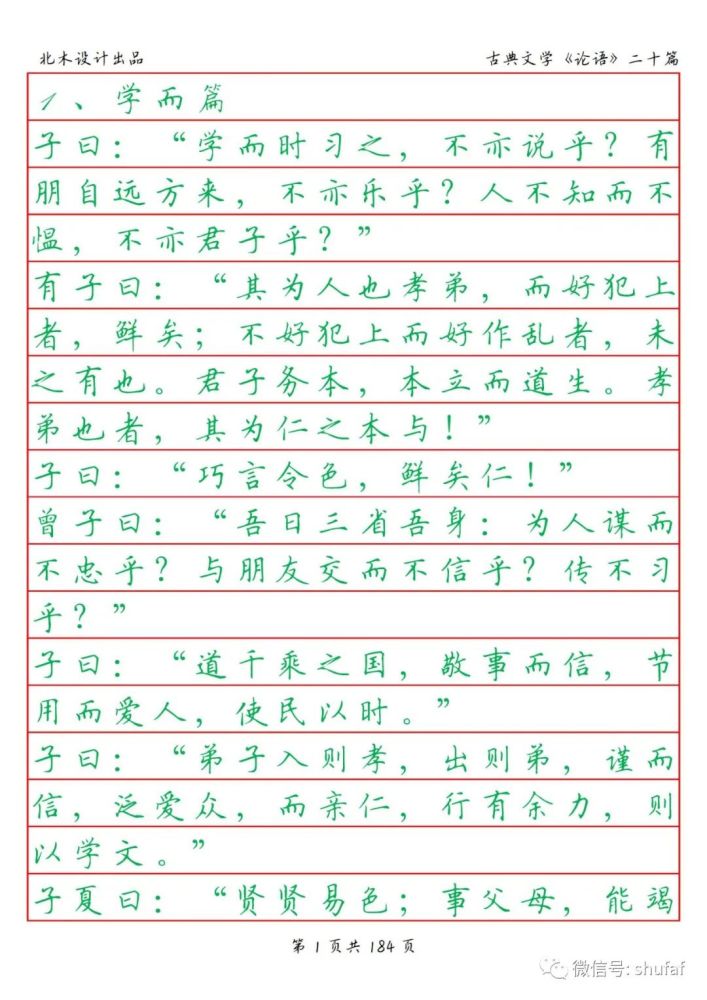 北木设计出品 古典文学《论语》二十篇
1、学而篇
子曰：“学而时习之，不亦说乎？有
朋自远方来，不亦乐乎？人不知而不
愠，不亦君子乎？”
有子曰：“其为人也孝弟，而好犯上
者，鲜矣；不好犯上而好作乱者，未
之有也。君子务本，本立而道生。孝
弟也者，其为仁之本与！”
子曰：“巧言令色，鲜矣仁！”
曾子曰：“吾日三省吾身：为人谋而
不忠乎？与朋友交而不信乎？传不习
乎？”
子曰：“道千乘之国，敬事而信，节
用而爱人，使民以时。”
子曰：“弟子入则孝，出则弟，谨而
信，泛爱众，而亲仁，行有余力，则
以学文。”
子夏曰：“贤贤易色；事父母，能竭
第 1 页共 184 页
微信号: shufaf